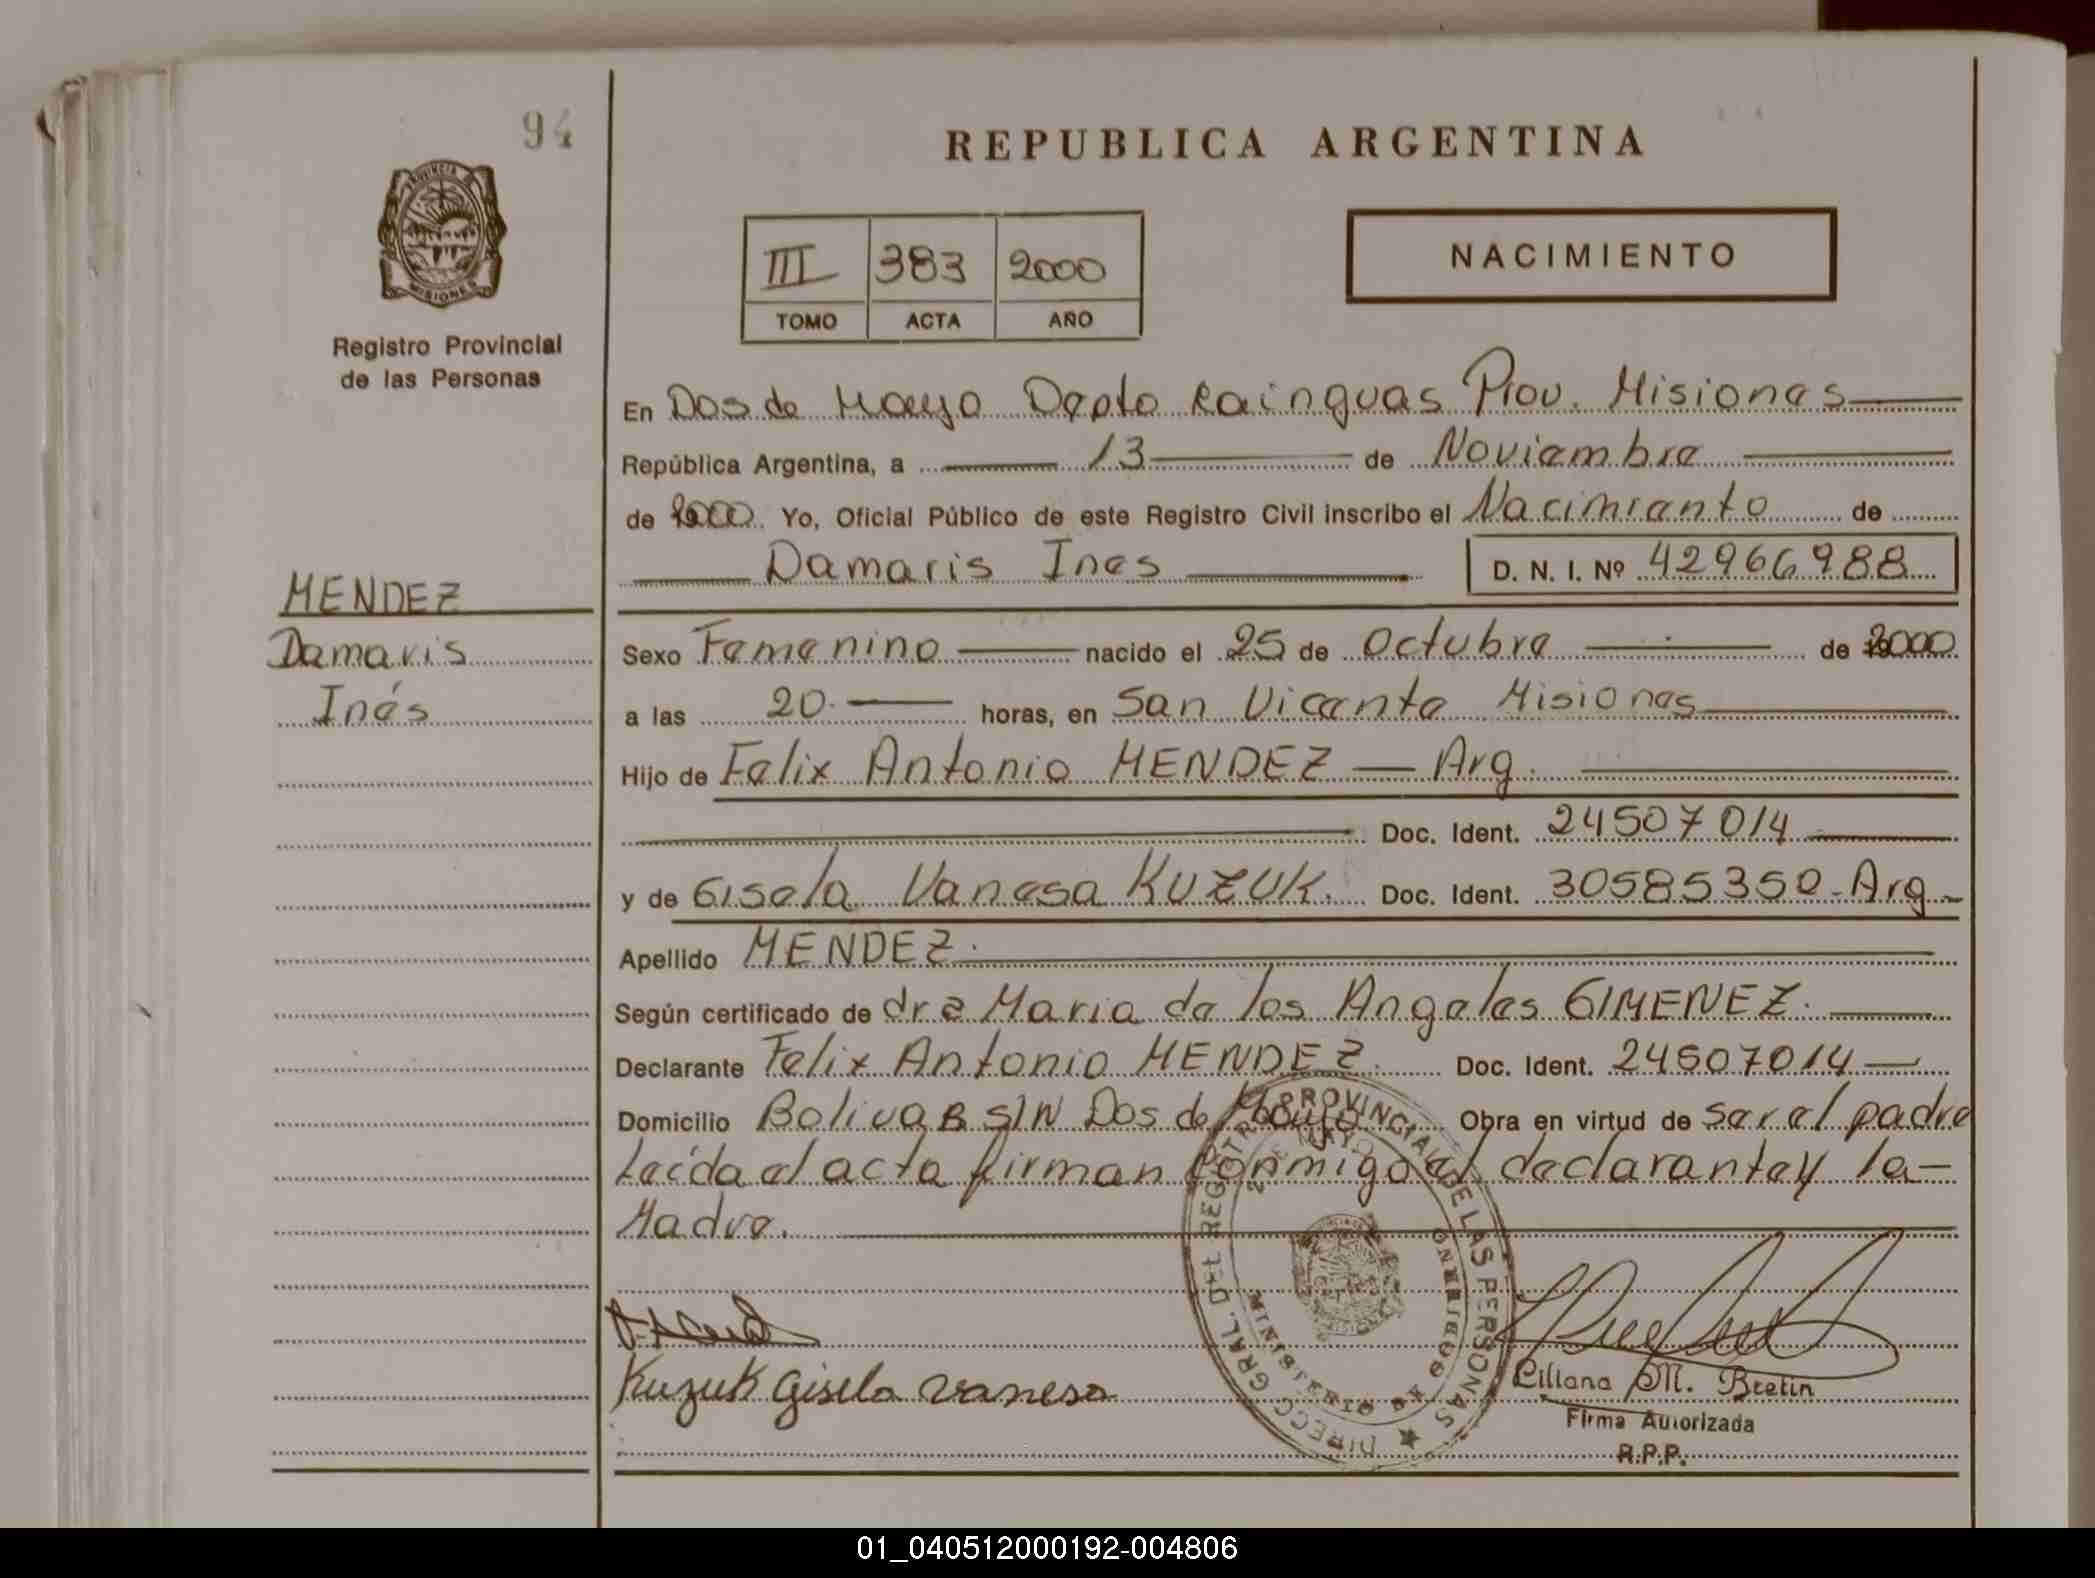 94
PROVINCIA DE
MISIONES
Registro Provincial
de las Personas
MENDEZ
Damaris
Inés
REPUBLICA ARGENTINA
III 383 2000
TOMO ACTA AÑO
NACIMIENTO
En Dos de Mayo Depto Cainguas Prov. Misiones
República Argentina, a 13 de Noviembre
de 2000 Yo, Oficial Público de este Registro Civil inscribo el Nacimiento de
Damaris Ines D. N. I. Nº 42966988
Sexo Femenino nacido el 25 de Octubre de 2000
a las 20 horas, en San Vicente Misiones
Hijo de Felix Antonio MENDEZ — Arg.
Doc. Ident. 24507014
y de Gisela Vanesa KUZUK. Doc. Ident. 30585350 - Arg -
Apellido MENDEZ.
Según certificado de dra Maria de los Angeles GIMENEZ.
Declarante Felix Antonio MENDEZ. Doc. Ident. 24507014 —
Domicilio Bolivar S/N Dos de Mayo Obra en virtud de ser el padre
Leída el acta firman conmigo el declarante y la -
Madre.
Kuzuk Gisela vanesa
DIRECC GRAL. DEL REGISTRO PROVINCIAL DE LAS PERSONAS
2 DE MAYO
MINISTERIO DE GOBIERNO
Liliana M. Bretin
Firma Autorizada
R.P.P.
01_040512000192-004806